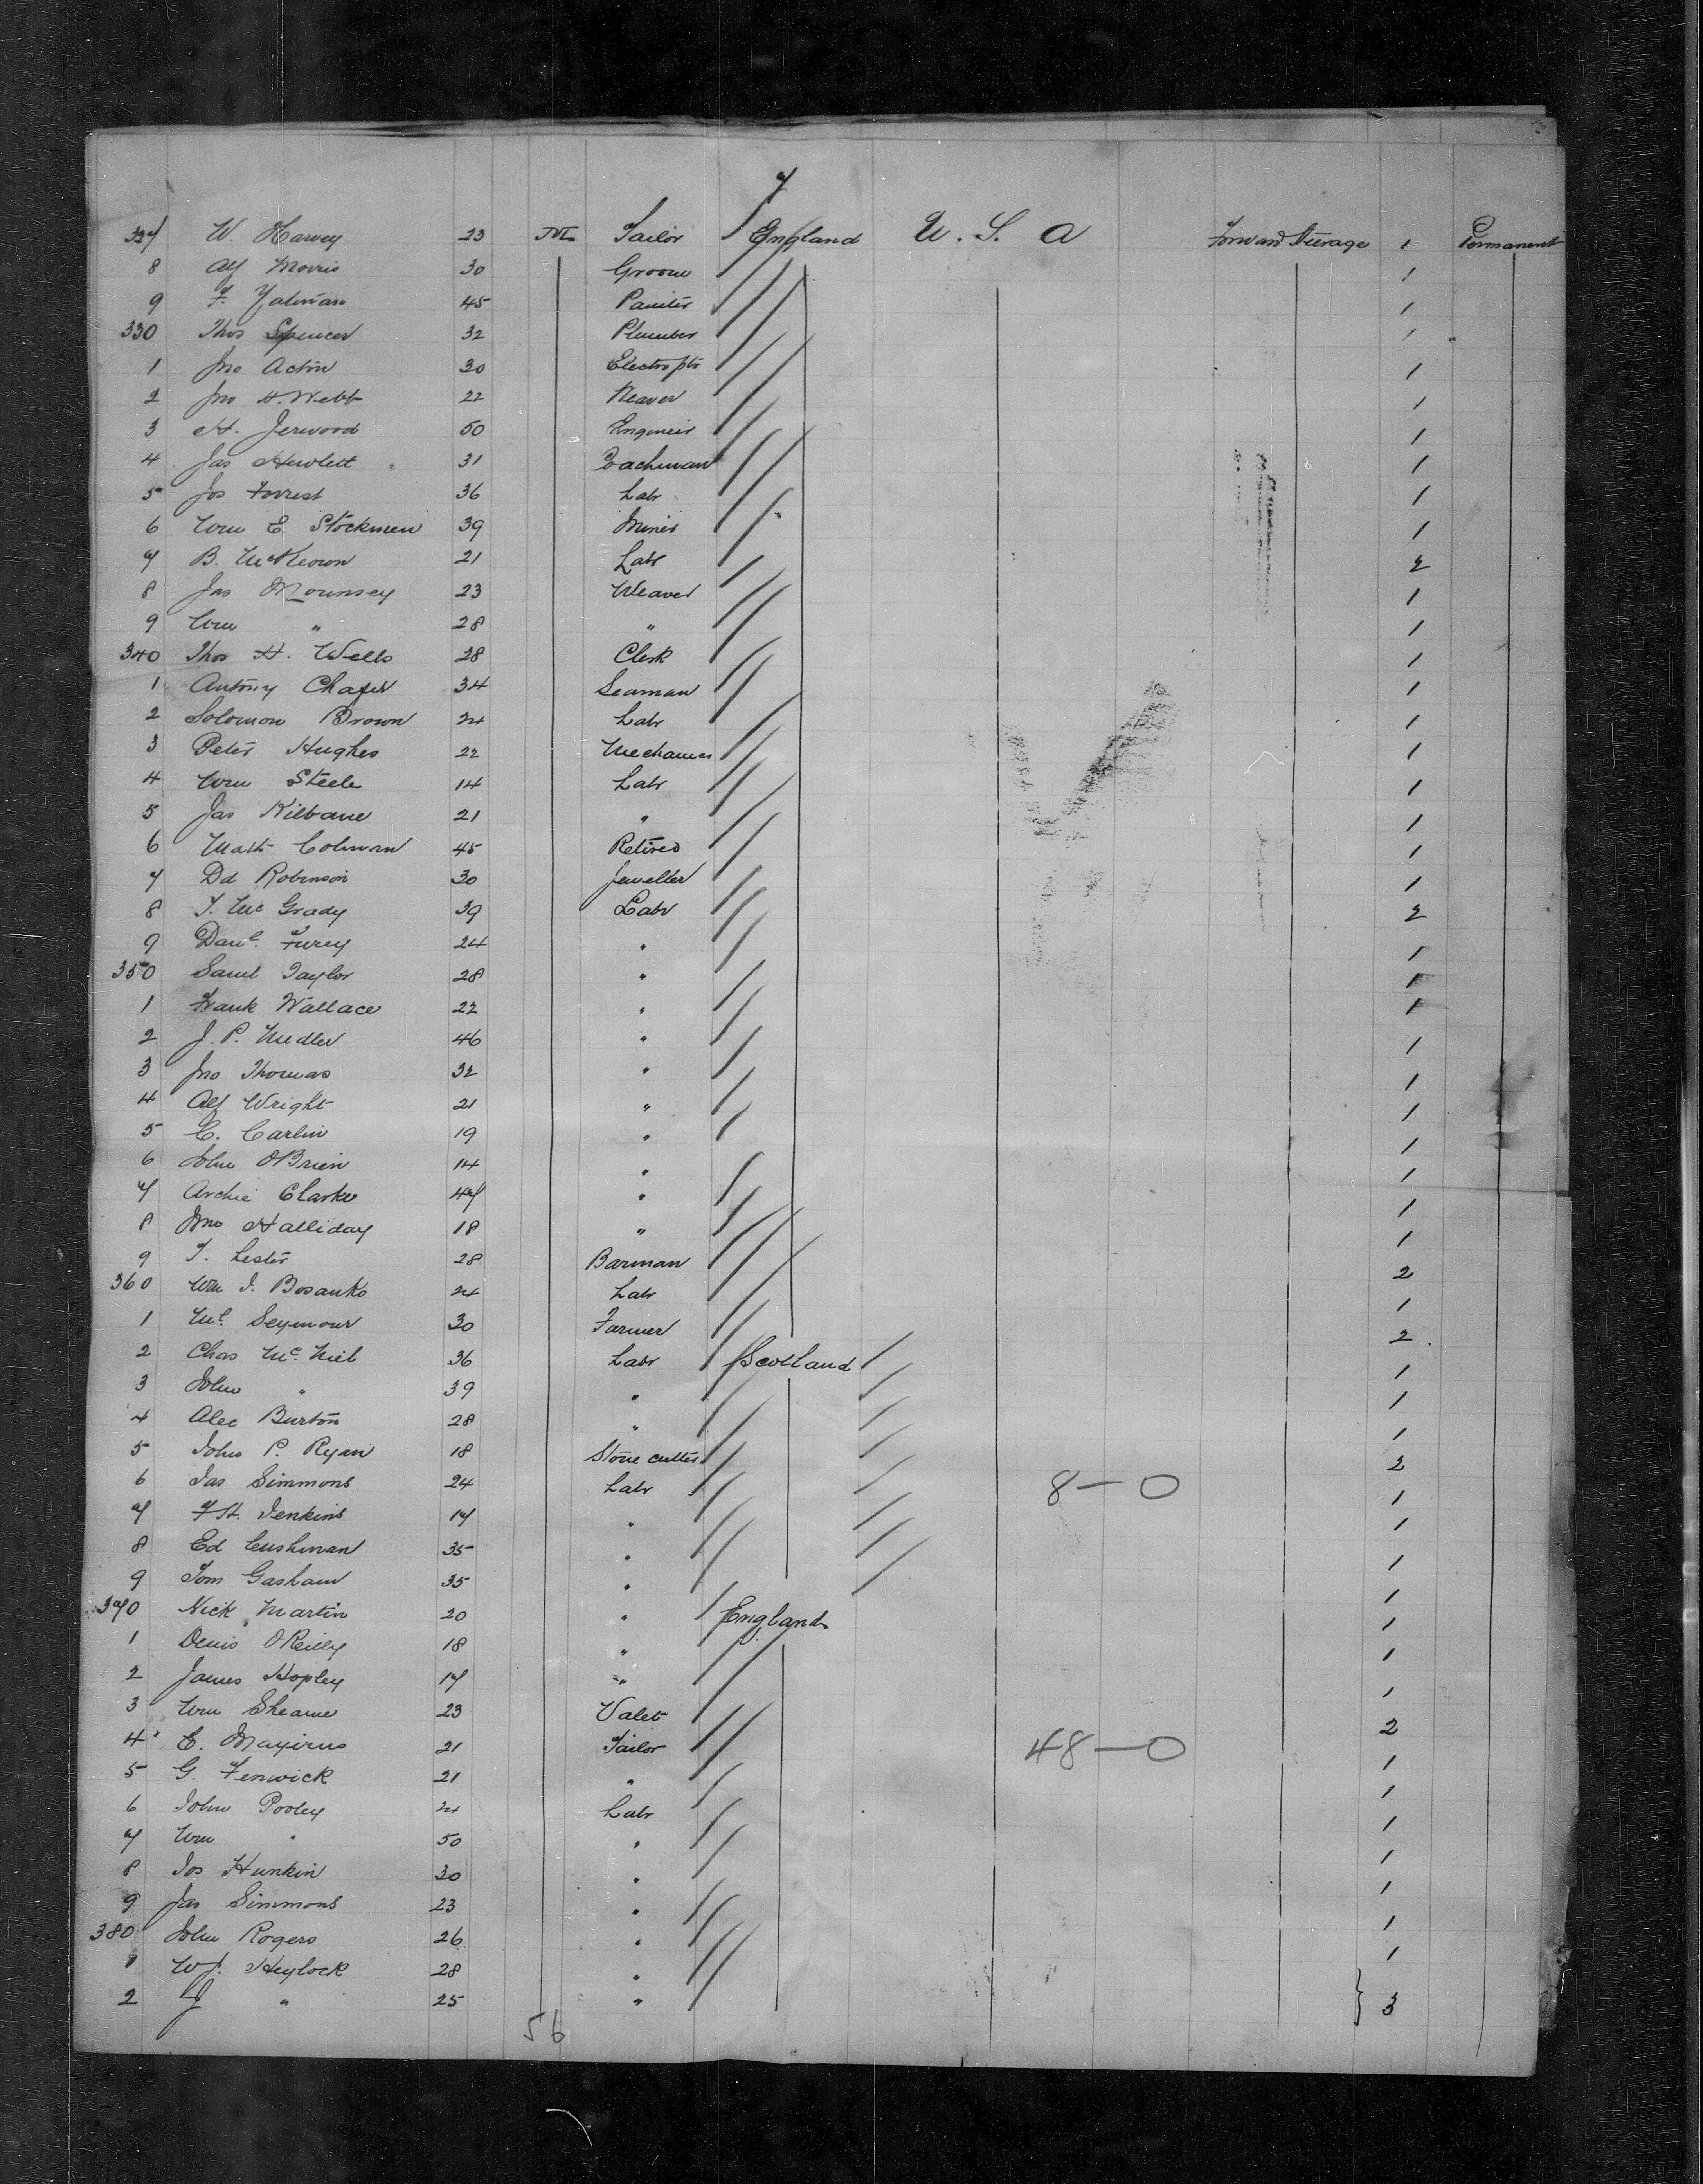 7
327 W. Harvey 23 M Tailor England U. S. A Forward Steerage 1 Permanent
8 Alf Morris 30 Groom 1
9 F. Yatman 45 Painter 1
330 Thos Spencer 32 Plumber 1
1 Jno Acton 30 Electroptr 1
2 Jno H. Webb 22 Weaver 1
3 H. Jerwood 50 Engineer 1
4 Jas Hewlett 31 Coachman 1
5 Jos Forrest 36 Labr 1
6 Wm E. Stockmen 39 Miner 1
7 B. McKeown 21 Labr 2
8 Jas Mounsey 23 Weaver 1
9 Wm " 28 " 1
340 Thos H. Wells 28 Clerk 1
1 Antony Chafer 34 Seaman 1
2 Solomon Brown 24 Labr 1
3 Peter Hughes 22 Mechanic 1
4 Wm Steele 14 Labr 1
5 Jas Kilbane 21 " 1
6 Matt Colman 45 Retired 1
7 Dd Robinson 30 Jeweller 1
8 T. McGrady 39 Labr 2
9 Danl. Furey 24 " 1
350 Saml Taylor 28 " 1
1 Frank Wallace 22 " 1
2 J. P. Medler 46 " 1
3 Jno Thomas 32 " 1
4 Alf Wright 21 " 1
5 C. Carlin 19 " 1
6 John OBrien 14 " 1
7 Archie Clarke 47 " 1
8 Jno Halliday 18 " 1
9 T. Lester 28 Barman 2
360 Wm J. Bosanko 24 Labr 1
1 Ml. Seymour 30 Farmer 2
2 Chas Mc. Neil 36 Labr Scotland 1
3 John " 39 " 1
4 Alec Burton 28 " 1
5 John P. Ryan 18 Stone cutter 2
6 Jas Simmons 24 Labr 8-0 1
7 F H. Jenkins 17 " 1
8 Ed Cushman 35 " 1
9 Tom Gasham 35 " 1
370 Nick Martin 20 " England 1
1 Denis OReilly 18 " 1
2 James Hopley 17 " 1
3 Wm Shearne 23 Valet 2
4 E. 21 Tailor 48-0 1
5 G. Fenwick 21 " 1
6 John Pooley 24 Labr 1
7 Wm " 50 " 1
8 Jos Hunkin 30 " 1
9 Jas Simmons 23 " 1
380 John Rogers 26 " 1
1 W J. Heylock 28 "
2 J " 25 " 3
56